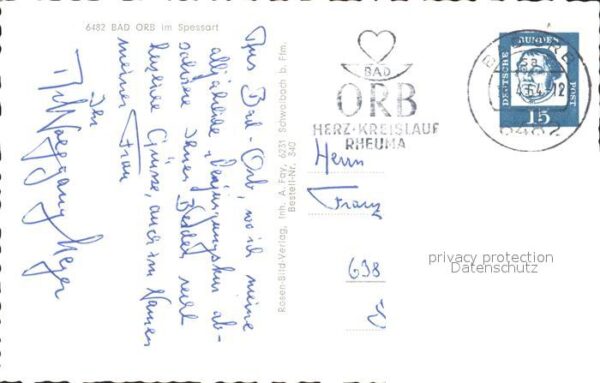 6482 BAD ORB im Spessart
Aus Bad-Orb, wo ich meine
alljährliche "Verjüngungskur" ab-
solviere Ihnen recht
herzliche Grüsse, auch im Namen
meiner Frau
Ihr
Wolfgang Meyer
Rosen-Bild-Verlag, Inh. A. Fay, 6231 Schwalbach b. Ffm.
Bestell-Nr. 340
BAD
ORB
HERZ·KREISLAUF
RHEUMA
BAD ORB
4.64.-12
6482
DEUTSCHE
BUNDES
POST
15
Herrn
Franz
698
privacy protection
Datenschutz